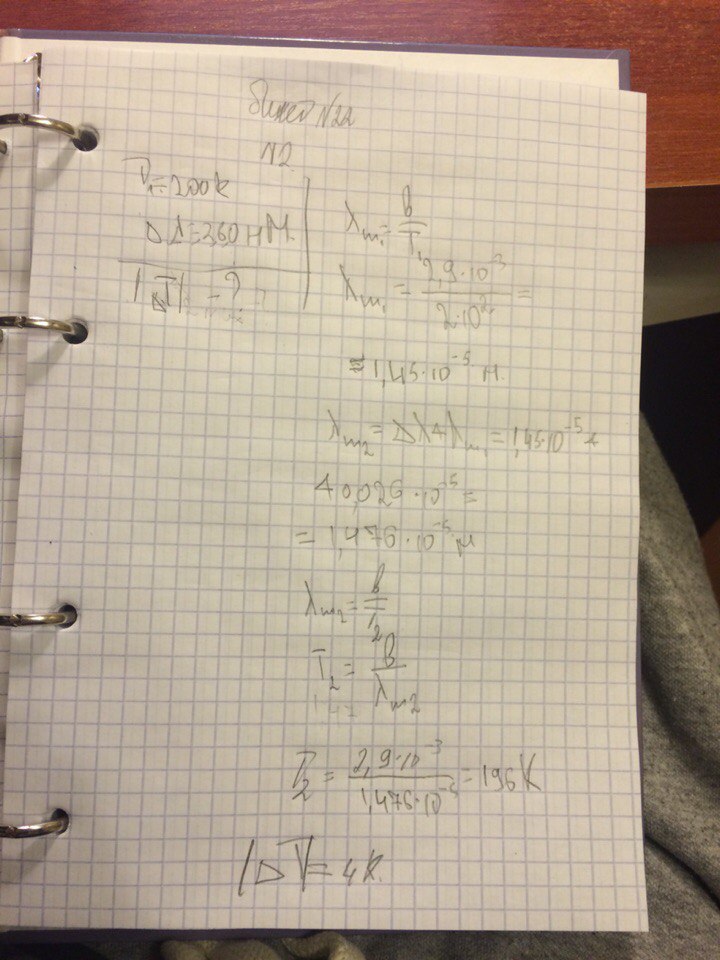 Билет N22
N2
T₁ = 200K
Δλ = 360 нм
|ΔT| - ?
λm₁ = b/T₁
λm₁ = 2,9·10⁻³/2·10² =
= 1,45·10⁻⁵ м.
λm₂ = Δλ + λm₁ = 1,45·10⁻⁵ +
+ 0,026·10⁻⁵ =
= 1,476·10⁻⁵ м
λm₂ = b/T₂
T₂ = b/λm₂
T₂ = 2,9·10⁻³/1,476·10⁻⁵ = 196K
|ΔT| = 4K.